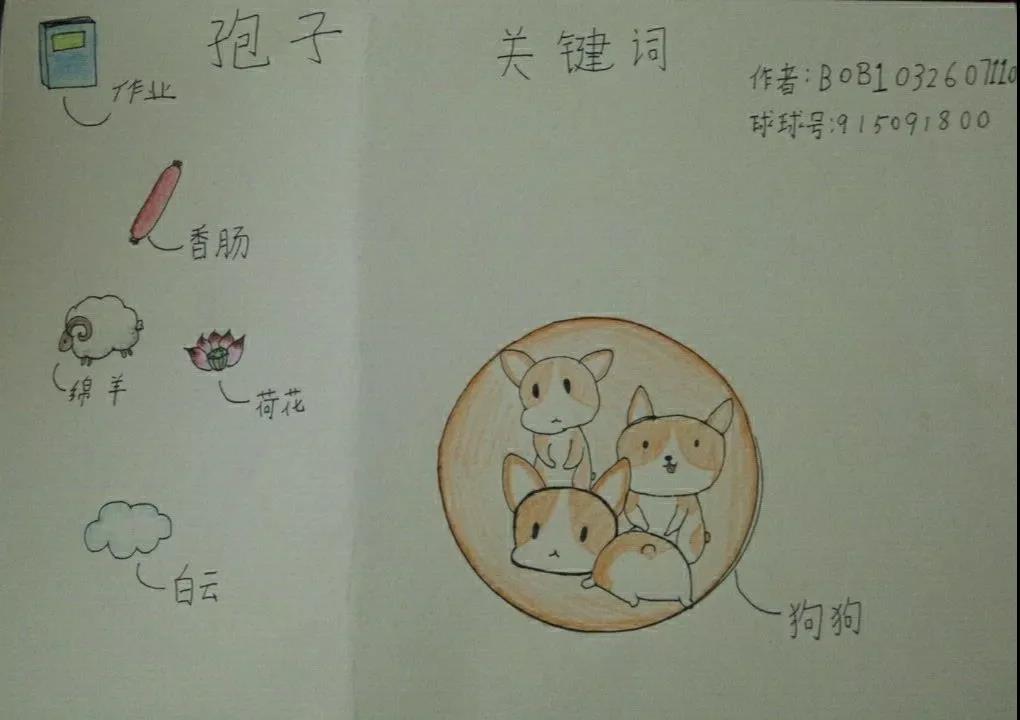 孢子
关键词
作业
作者:BOB1032607110
球球号:915091800
香肠
绵羊
荷花
白云
狗狗